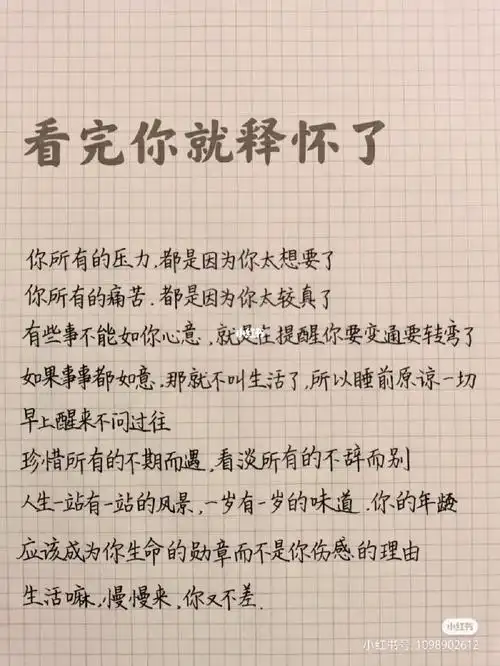 看完你就释怀了
你所有的压力.都是因为你太想要了
你所有的痛苦.都是因为你太较真了
小红书
有些事不能如你心意,就是在提醒你要变通要转弯了
如果事事都如意.那就不叫生活了,所以睡前原谅一切
早上醒来不问过往
珍惜所有的不期而遇,看淡所有的不辞而别
人生一站有一站的风景,一岁有一岁的味道.你的年龄
应该成为你生命的勋章而不是你伤感的理由
生活嘛,慢慢来,你又不差.
小红书
小红书号:1098902612